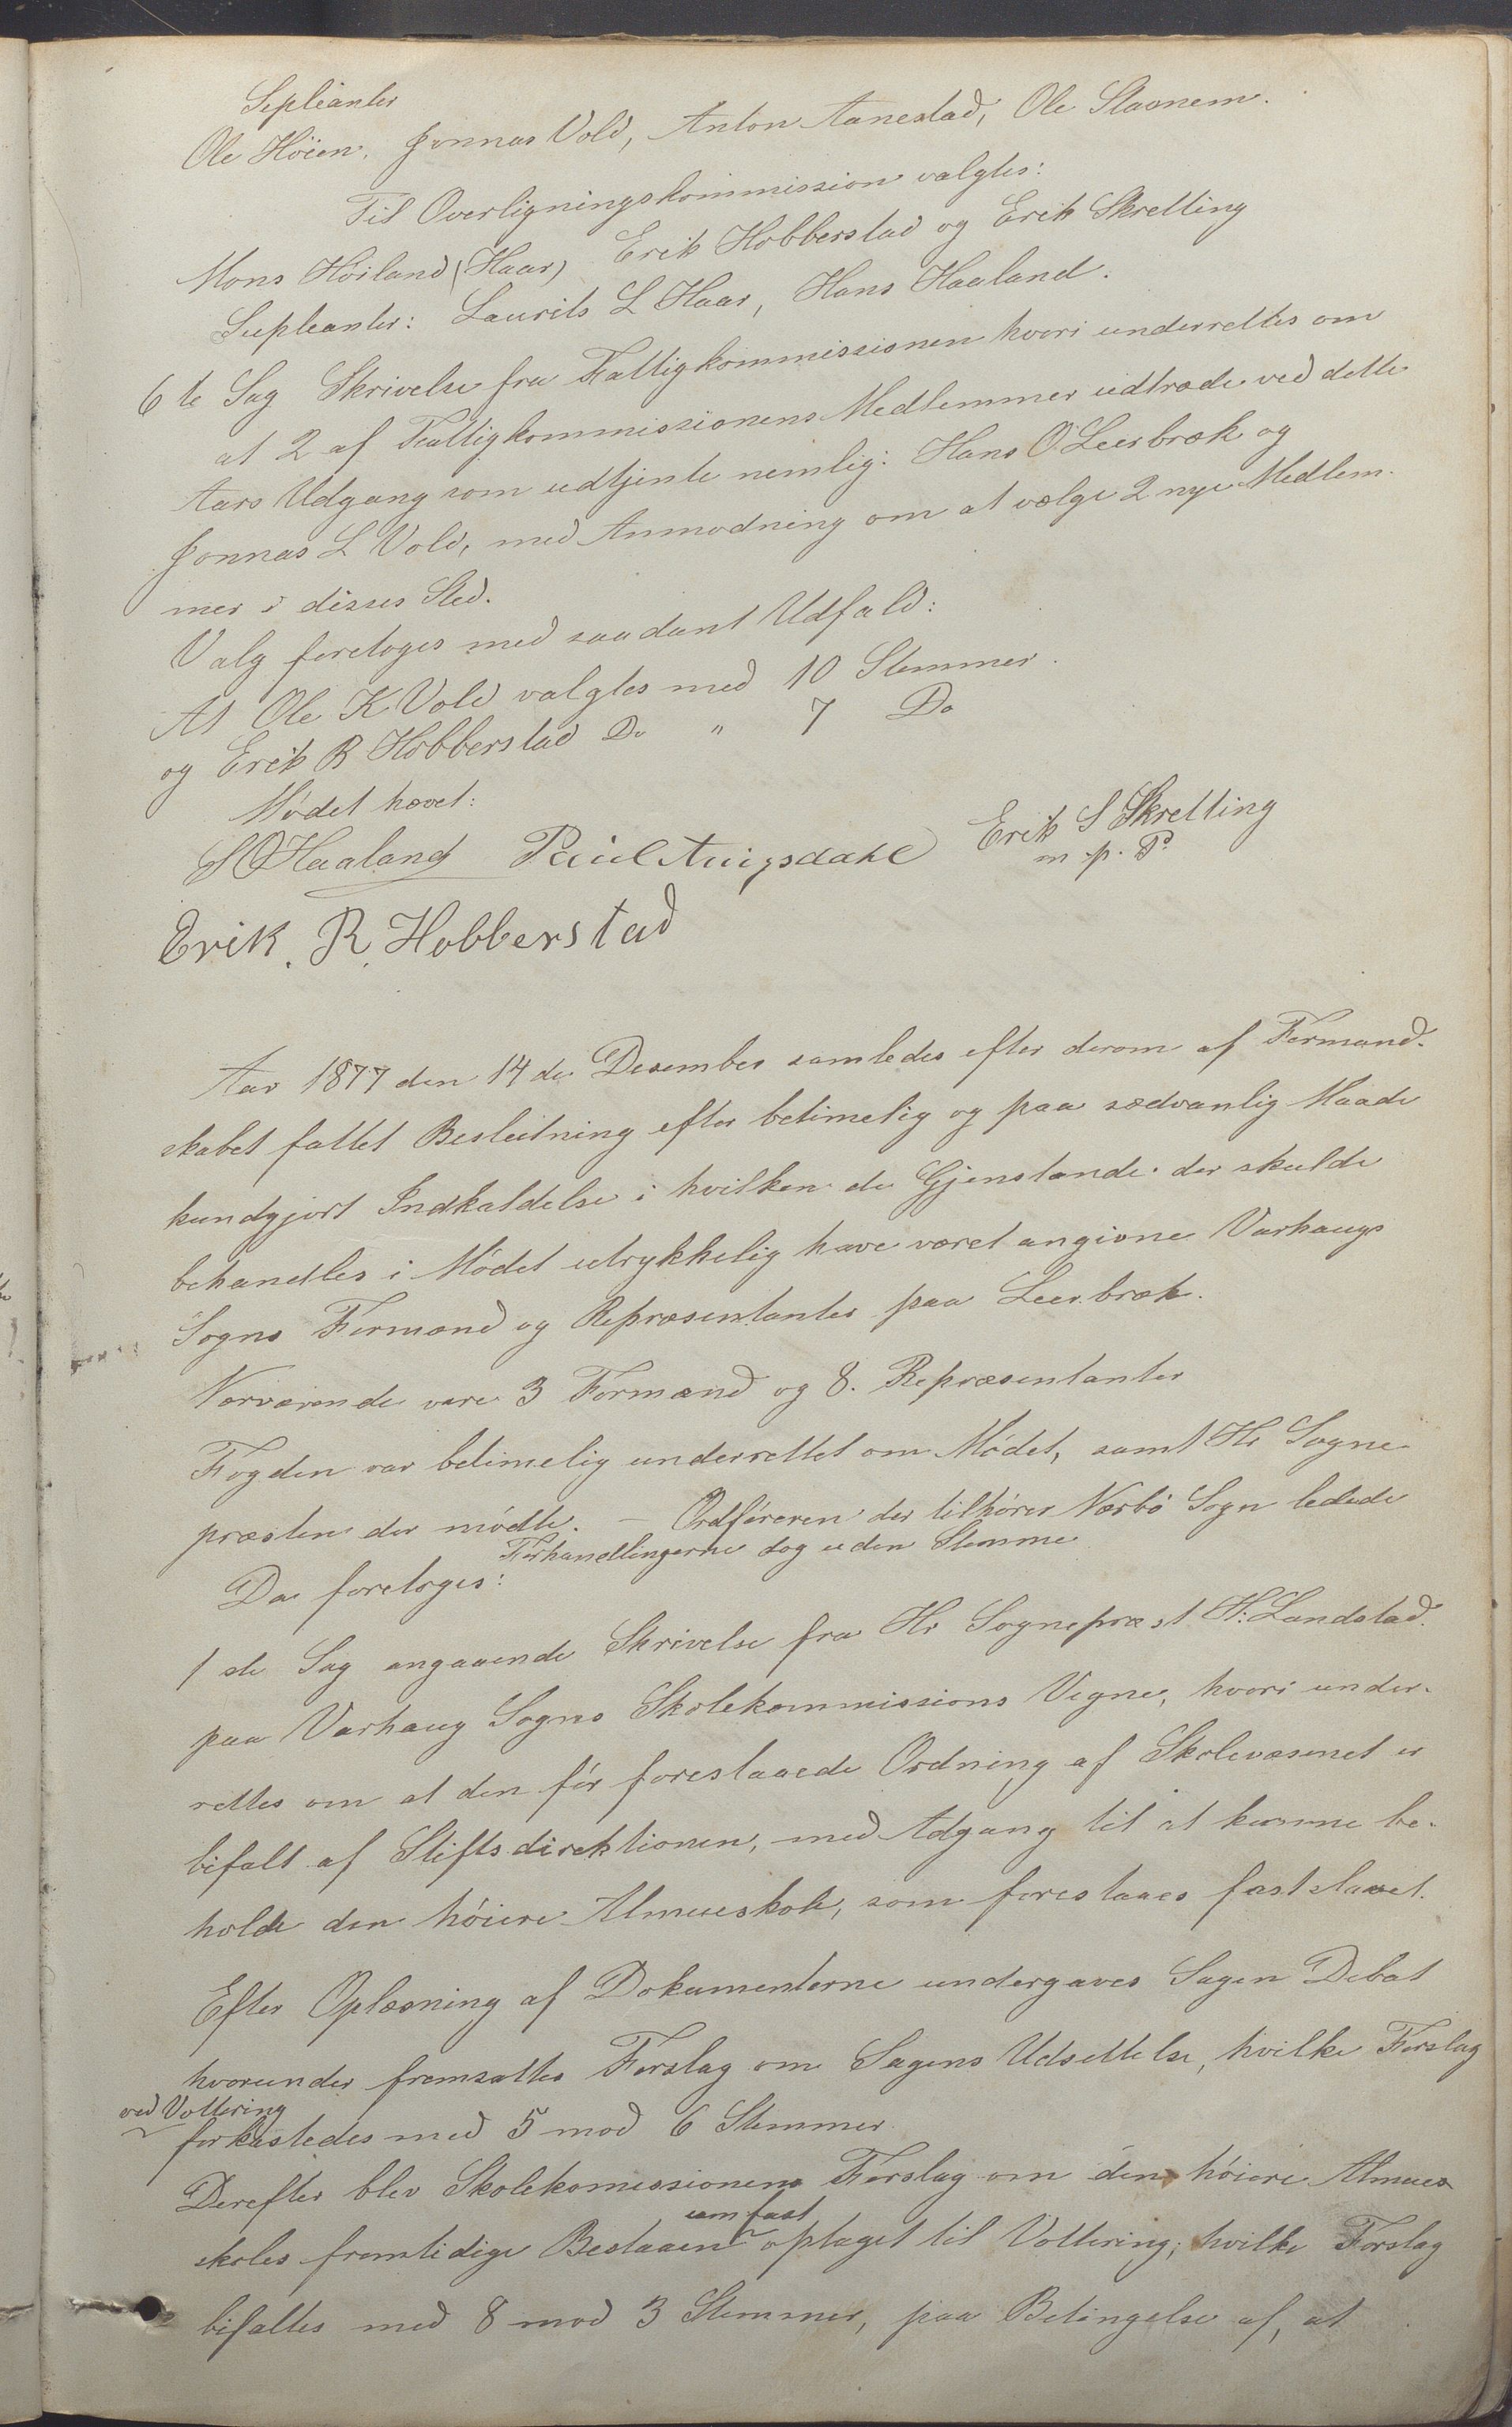 Sepleanter
Ole Höien, Jonnas Vold, Anton Aanestad, Ole Stavnem.
Til Overligningskommission valgtes:
Mons Höiland (Haar) Erik Hobberstad og Erik Skretting
Supleanter: Laurits L Haar, Hans Haaland.
6te Sag Skrivelse fra Fattigkommissionen hvori underrettes om
at 2 af Fattigkommissionens Medlemmer udtræde ved dette
Aars Udgang som udtjente nemlig: Hans O Leerbræk og
Jonnas L Vold, med Anmodning om at vælge 2 nye Medlem-
mer i disses Sted.
Valg foretoges med saadant Udfald:
At Ole K Vold valgtes med 10 Stemmer.
og Erik R Hobberstad Do " 7 Do
Mödet hævet:
S O Haaland Paul Auigsdahl Erik S Skretting
m. p. P.
Erik. R. Hobberstad
Aar 1877 den 14de Desember samledes efter derom af Formand-
skabet fattet Beslutning efter betimelig og paa sædvanlig Maade
kundgjort Indkaldelse i hvilken de Gjenstande der skulde
behandles i Mödet udrykkelig have været angivne Varhaugs
Sogns Formænd og Repræsentanter paa Leerbræk.
Nærværende vare 3 Formænd og 8. Repræsentanter
Fogden var betimelig underrettet om Mödet, samt Hr Sogne
præsten der mödte. — Ordföreren der tilhörer Nærbö Sogn ledede
Forhandlingerne dog uden Stemme
Da foretoges:
1ste Sag angaaende Skrivelse fra Hr Sognepræst H. Landstad.
paa Varhaug Sogns Skolekommissions Vegne, hvori under-
rettes om at den för foreslaaede Ordning af Skolevæsenet er
bifalt af Stiftsdirektionen, med Adgang til at kunne be-
holde den höiere Almueskole, som foreslaaes fastslaaet.
Efter Oplæsning af Dokumenterne undergaves Sagen Debat
hvorunder fremsattes Forslag om Sagens Udsettelse, hvilke Forslag
ved Vottering
forkastedes med 5 mod 6 Stemmer.
Derefter blev Skolekomissionens Forslag om den höiere Almues
som fast
skoles fremtidige Bestaaen optaget til Vottering; hvilke Forslag
bifaltes med 8 mod 3 Stemmer, paa Betingelse af, at